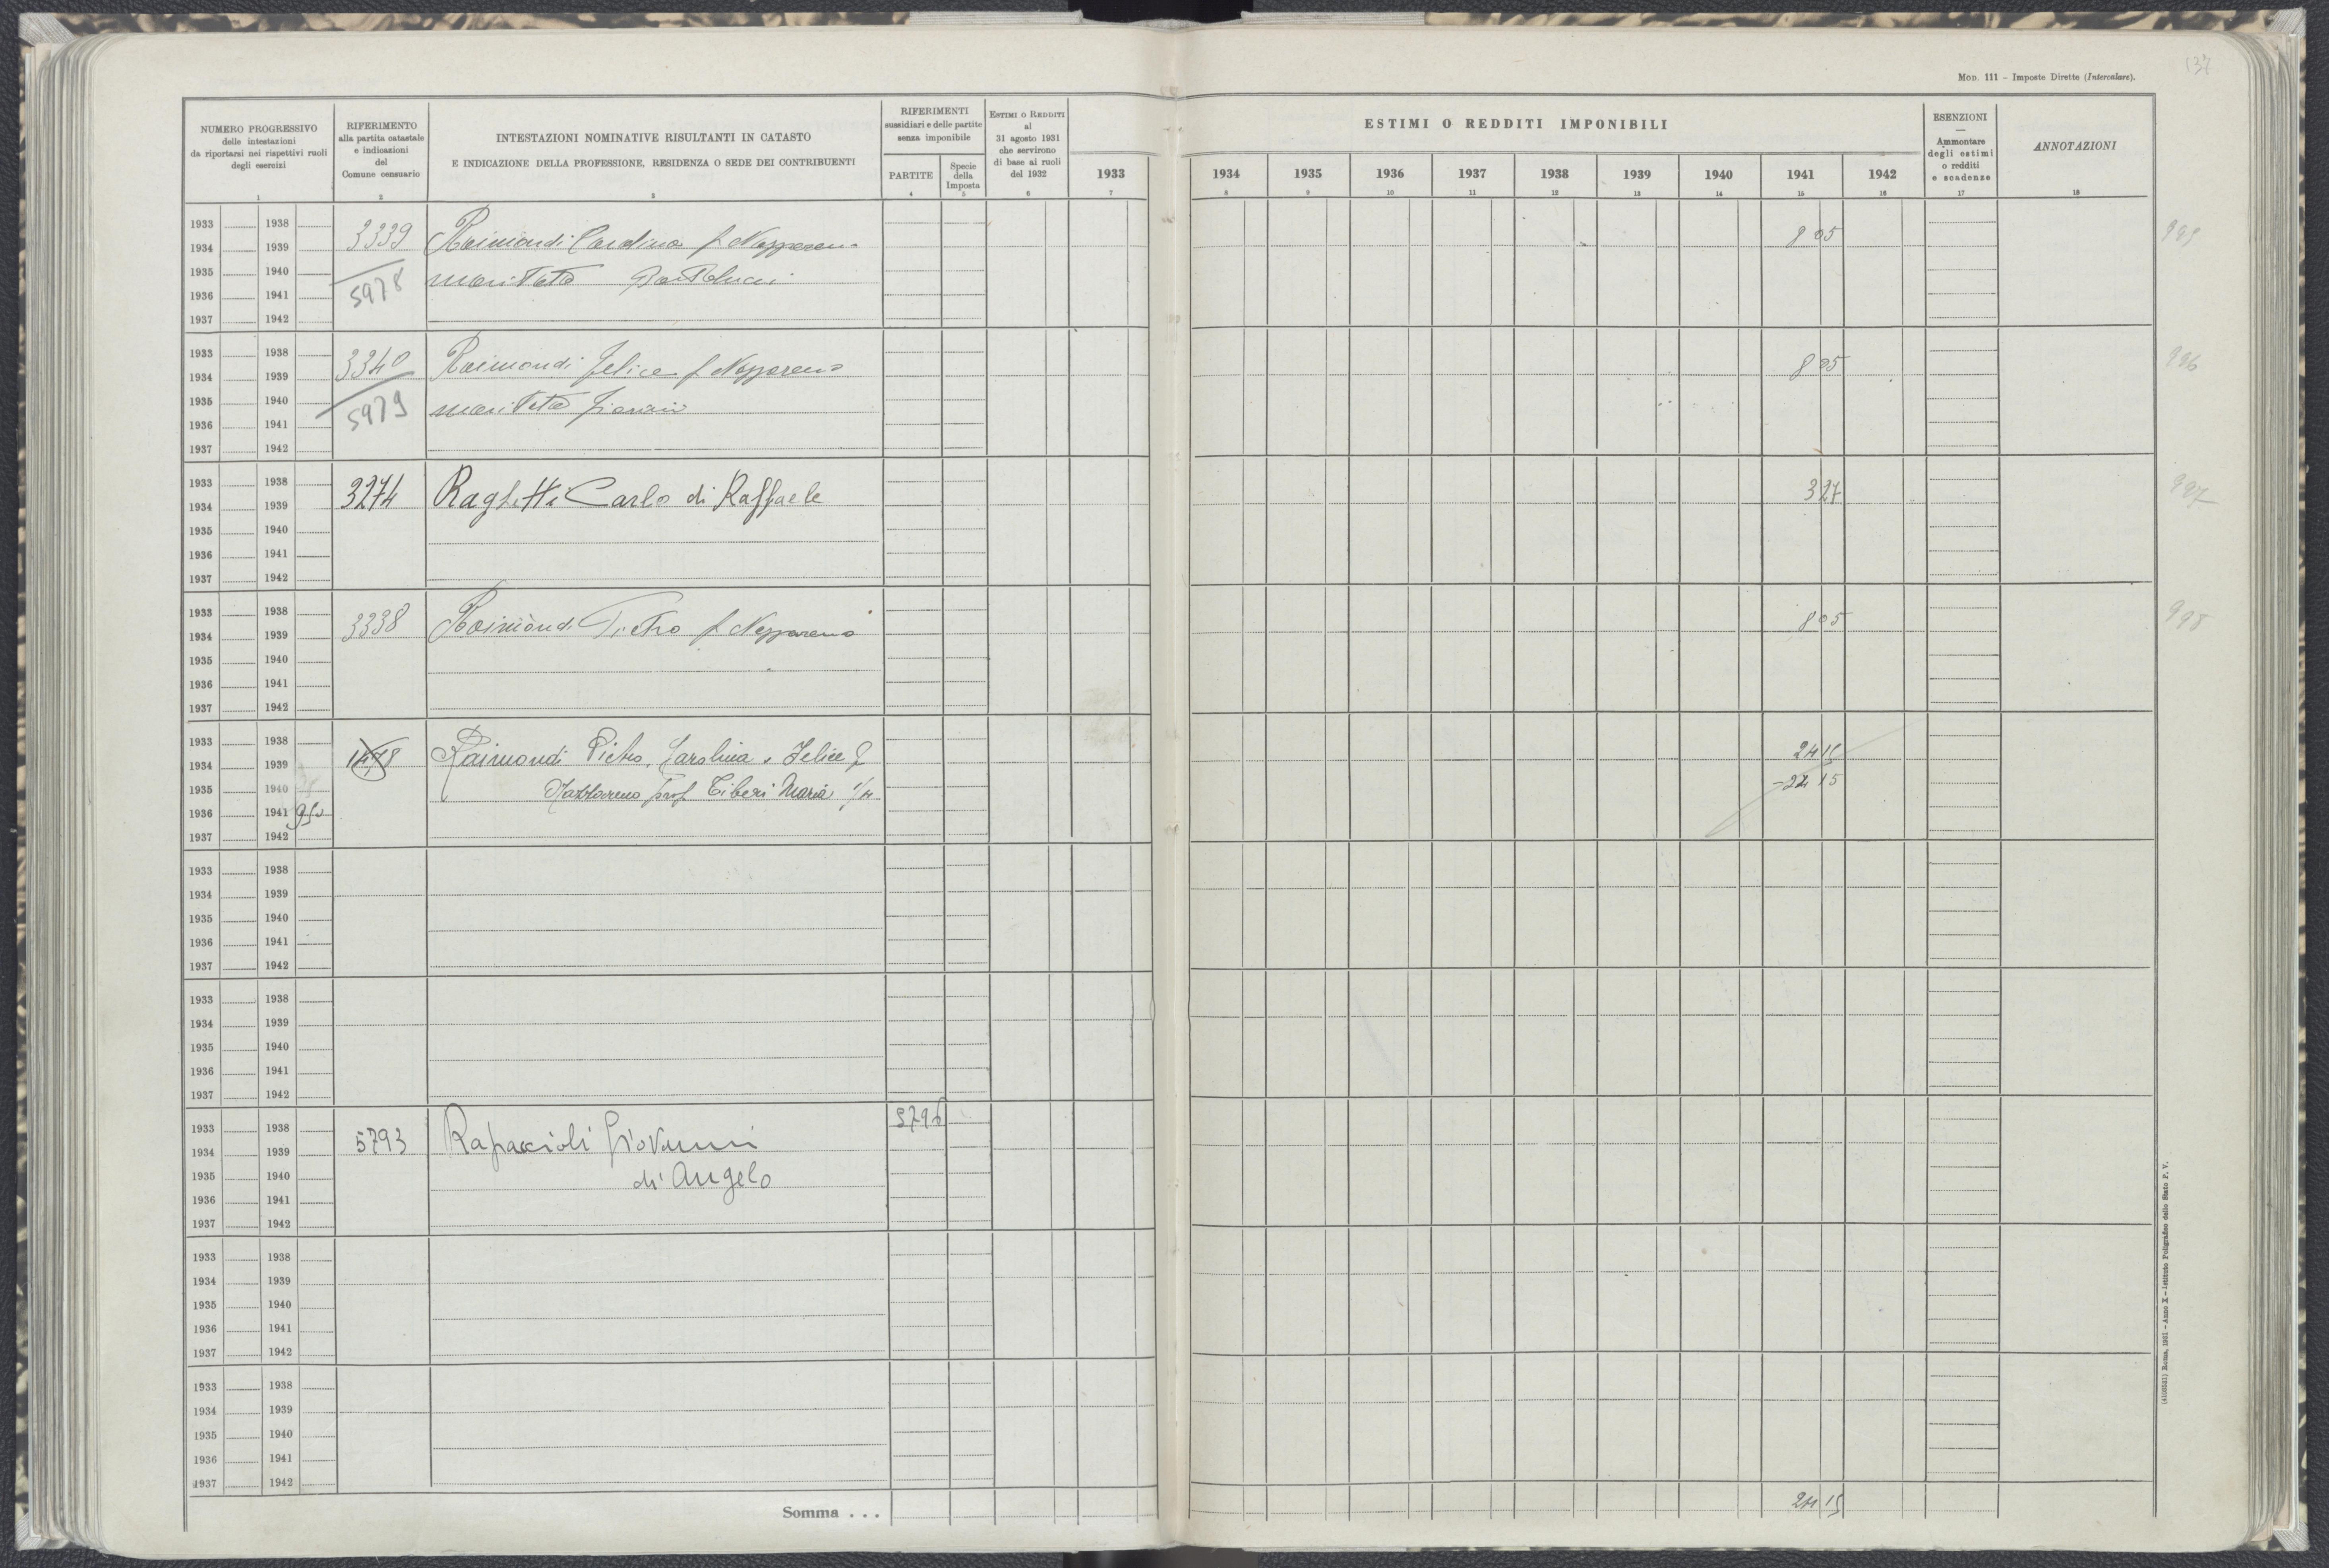 MOD. 111 – Imposte Dirette (Intercalare).
137
NUMERO PROGRESSIVO
delle intestazioni
da riportarsi nei rispettivi ruoli
degli esercizi
1
RIFERIMENTO
alla partita catastale
e indicazioni
del
Comune censuario
2
INTESTAZIONI NOMINATIVE RISULTANTI IN CATASTO
E INDICAZIONE DELLA PROFESSIONE, RESIDENZA O SEDE DEI CONTRIBUENTI
3
RIFERIMENTI
sussidiari e delle partite
senza imponibile
PARTITE
4
Specie
della
Imposta
5
ESTIMI O REDDITI
al
31 agosto 1931
che servirono
di base ai ruoli
del 1932
6
ESTIMI O REDDITI IMPONIBILI
1933 1934 1935 1936 1937 1938 1939 1940 1941 1942
7 8 9 10 11 12 13 14 15 16
ESENZIONI
—
Ammontare
degli estimi
o redditi
e scadenze
17
ANNOTAZIONI
18
1933 1938 3339 Raimondi Carolina f Nazzareno 805
1934 1939
1935 1940 maritata Bartolucci
1936 1941 5978
1937 1942
1933 1938 3340 Raimondi Felice f Nazzareno 805 996
1934 1939
1935 1940 5979 maritata
1936 1941
1937 1942
1933 1938 3274 Raghetti Carlo di Raffaele 327 997
1934 1939
1935 1940
1936 1941
1937 1942
1933 1938 3338 Raimondi Pietro f Nazzareno 805 998
1934 1939
1935 1940
1936 1941
1937 1942
1933 1938 1478 Raimondi Pietro, Carolina e Felice f 2415
1934 1939
1935 1940 Nazzareno prof Tiberi Maria 1/4 -2415
1936 1941
1937 1942
1933 1938
1934 1939
1935 1940
1936 1941
1937 1942
1933 1938
1934 1939
1935 1940
1936 1941
1937 1942
1933 1938 5793 Rapaccioli Giovanni 5796
1934 1939
1935 1940 di Angelo
1936 1941
1937 1942
1933 1938
1934 1939
1935 1940
1936 1941
1937 1942
1933 1938
1934 1939
1935 1940
1936 1941
1937 1942
Somma . . . 2415
Roma, 1931 – Anno X – Istituto Poligrafico dello Stato P. V.